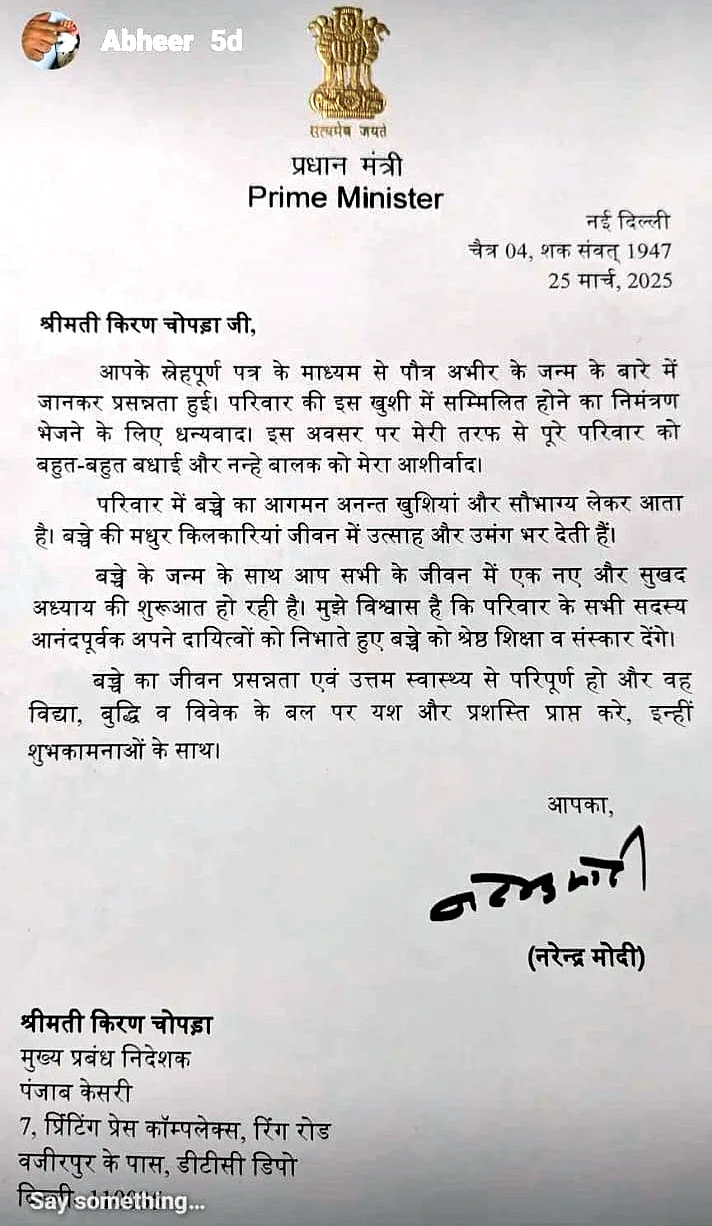 Abheer 5d
सत्यमेव जयते
प्रधान मंत्री
Prime Minister
नई दिल्ली
चैत्र 04, शक संवत् 1947
25 मार्च, 2025
श्रीमती किरण चोपड़ा जी,
आपके स्नेहपूर्ण पत्र के माध्यम से पौत्र अभीर के जन्म के बारे में
जानकर प्रसन्नता हुई। परिवार की इस खुशी में सम्मिलित होने का निमंत्रण
भेजने के लिए धन्यवाद। इस अवसर पर मेरी तरफ से पूरे परिवार को
बहुत-बहुत बधाई और नन्हे बालक को मेरा आशीर्वाद।
परिवार में बच्चे का आगमन अनन्त खुशियां और सौभाग्य लेकर आता
है। बच्चे की मधुर किलकारियां जीवन में उत्साह और उमंग भर देती हैं।
बच्चे के जन्म के साथ आप सभी के जीवन में एक नए और सुखद
अध्याय की शुरूआत हो रही है। मुझे विश्वास है कि परिवार के सभी सदस्य
आनंदपूर्वक अपने दायित्वों को निभाते हुए बच्चे को श्रेष्ठ शिक्षा व संस्कार देंगे।
बच्चे का जीवन प्रसन्नता एवं उत्तम स्वास्थ्य से परिपूर्ण हो और वह
विद्या, बुद्धि व विवेक के बल पर यश और प्रशस्ति प्राप्त करे, इन्हीं
शुभकामनाओं के साथ।
आपका,
नरेन्द्र मोदी
(नरेन्द्र मोदी)
श्रीमती किरण चोपड़ा
मुख्य प्रबंध निदेशक
पंजाब केसरी
7, प्रिंटिंग प्रेस कॉम्पलेक्स, रिंग रोड
वजीरपुर के पास, डीटीसी डिपो
Say something...